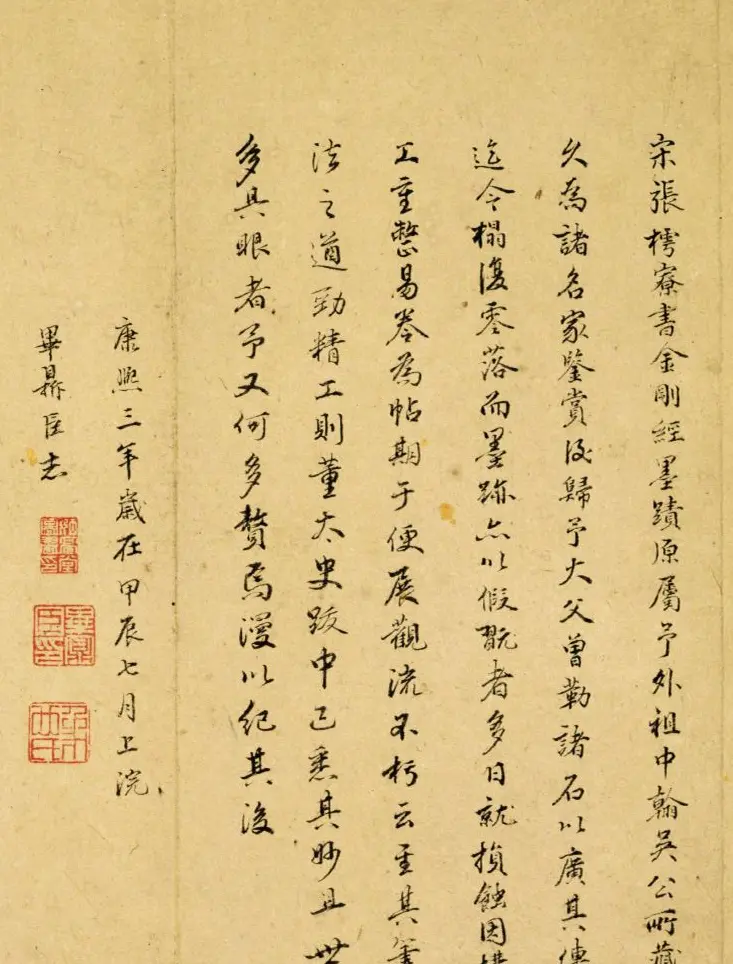 宋張樗寮書金剛經墨蹟原屬予外祖中翰吳公所藏
久為諸名家鑒賞後歸予大父曾勒諸石以廣其傳
迄今榻復零落而墨跡亦以假翫者多日就損蝕因
工重整易卷為帖期于便展觀流不朽云至其書
法之遒勁精工則董太史跋中已悉其妙且世
多具眼者予又何多贅焉漫以紀其後
康熙三年歲在甲辰七月上浣
畢鼎臣志